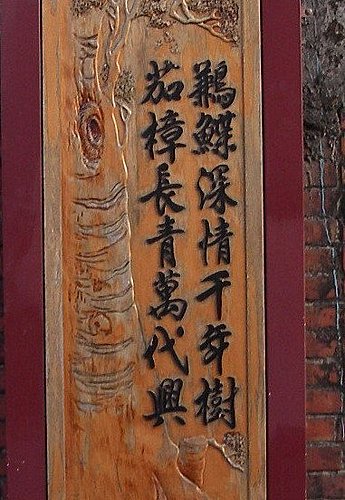 鶼鰈深情千年樹
茄樟長青萬代興